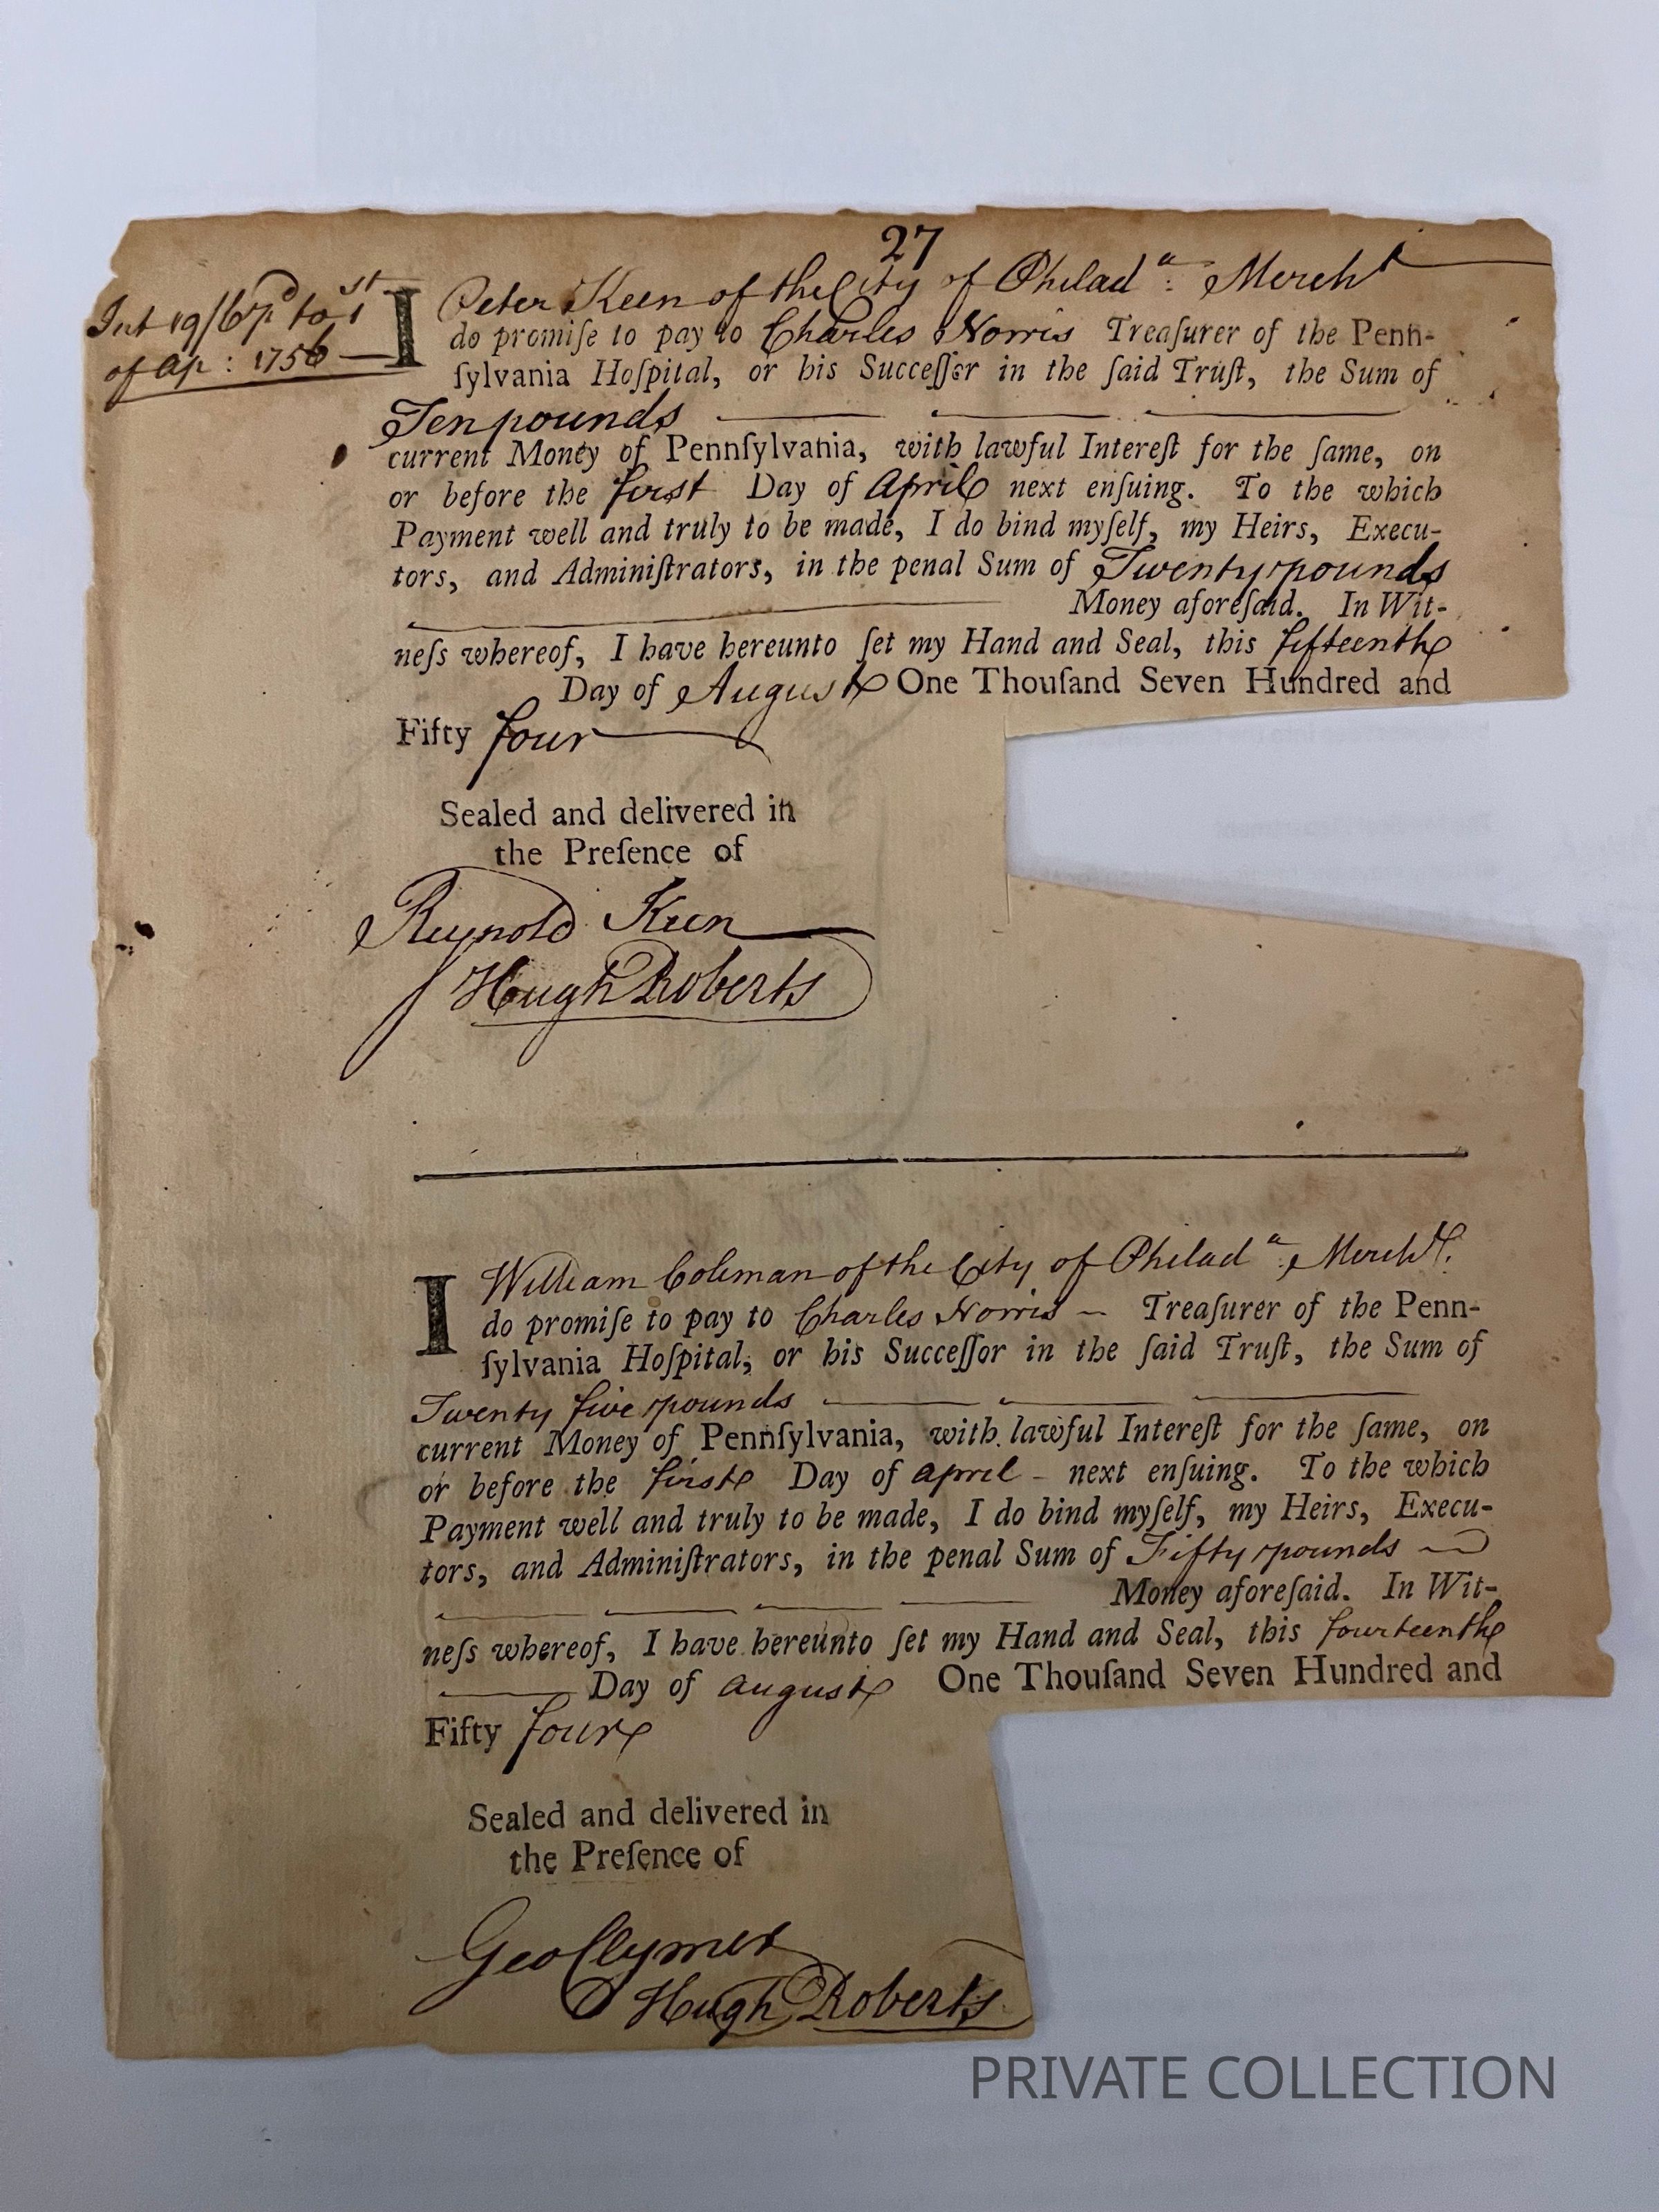 27
Int 19/6 pd to 1st
of Ap: 1756
I Peter Keen of the City of Philada: Mercht
do promiſe to pay to Charles Norris Treaſurer of the Penn-
ſylvania Hoſpital, or his Succeſſor in the ſaid Truſt, the Sum of
Ten pounds
current Money of Pennſylvania, with lawful Intereſt for the ſame, on
or before the first Day of April next enſuing. To the which
Payment well and truly to be made, I do bind myſelf, my Heirs, Execu-
tors, and Adminiſtrators, in the penal Sum of Twenty pounds
Money aforeſaid. In Wit-
neſs whereof, I have hereunto ſet my Hand and Seal, this fifteenth
Day of August One Thouſand Seven Hundred and
Fifty four
Sealed and delivered in
the Preſence of
Reynold Keen
Hugh Roberts
I William Coleman of the City of Philada: Mercht.
do promiſe to pay to Charles Norris Treaſurer of the Penn-
ſylvania Hoſpital, or his Succeſſor in the ſaid Truſt, the Sum of
Twenty five pounds
current Money of Pennſylvania, with lawful Intereſt for the ſame, on
or before the first Day of april next enſuing. To the which
Payment well and truly to be made, I do bind myſelf, my Heirs, Execu-
tors, and Adminiſtrators, in the penal Sum of Fifty pounds
Money aforeſaid. In Wit-
neſs whereof, I have hereunto ſet my Hand and Seal, this fourteenth
Day of august One Thouſand Seven Hundred and
Fifty four
Sealed and delivered in
the Preſence of
Geo Clymer
Hugh Roberts
PRIVATE COLLECTION